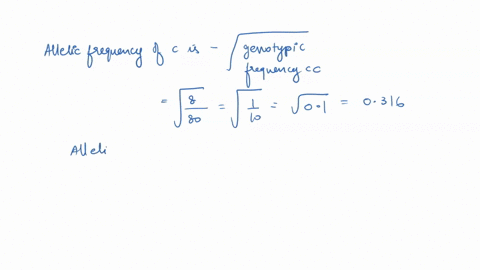 Allelic frequency of c is - √genotypic
frequency cc
= √8/80 = √1/10 = √0.1 = 0.316
Alleli